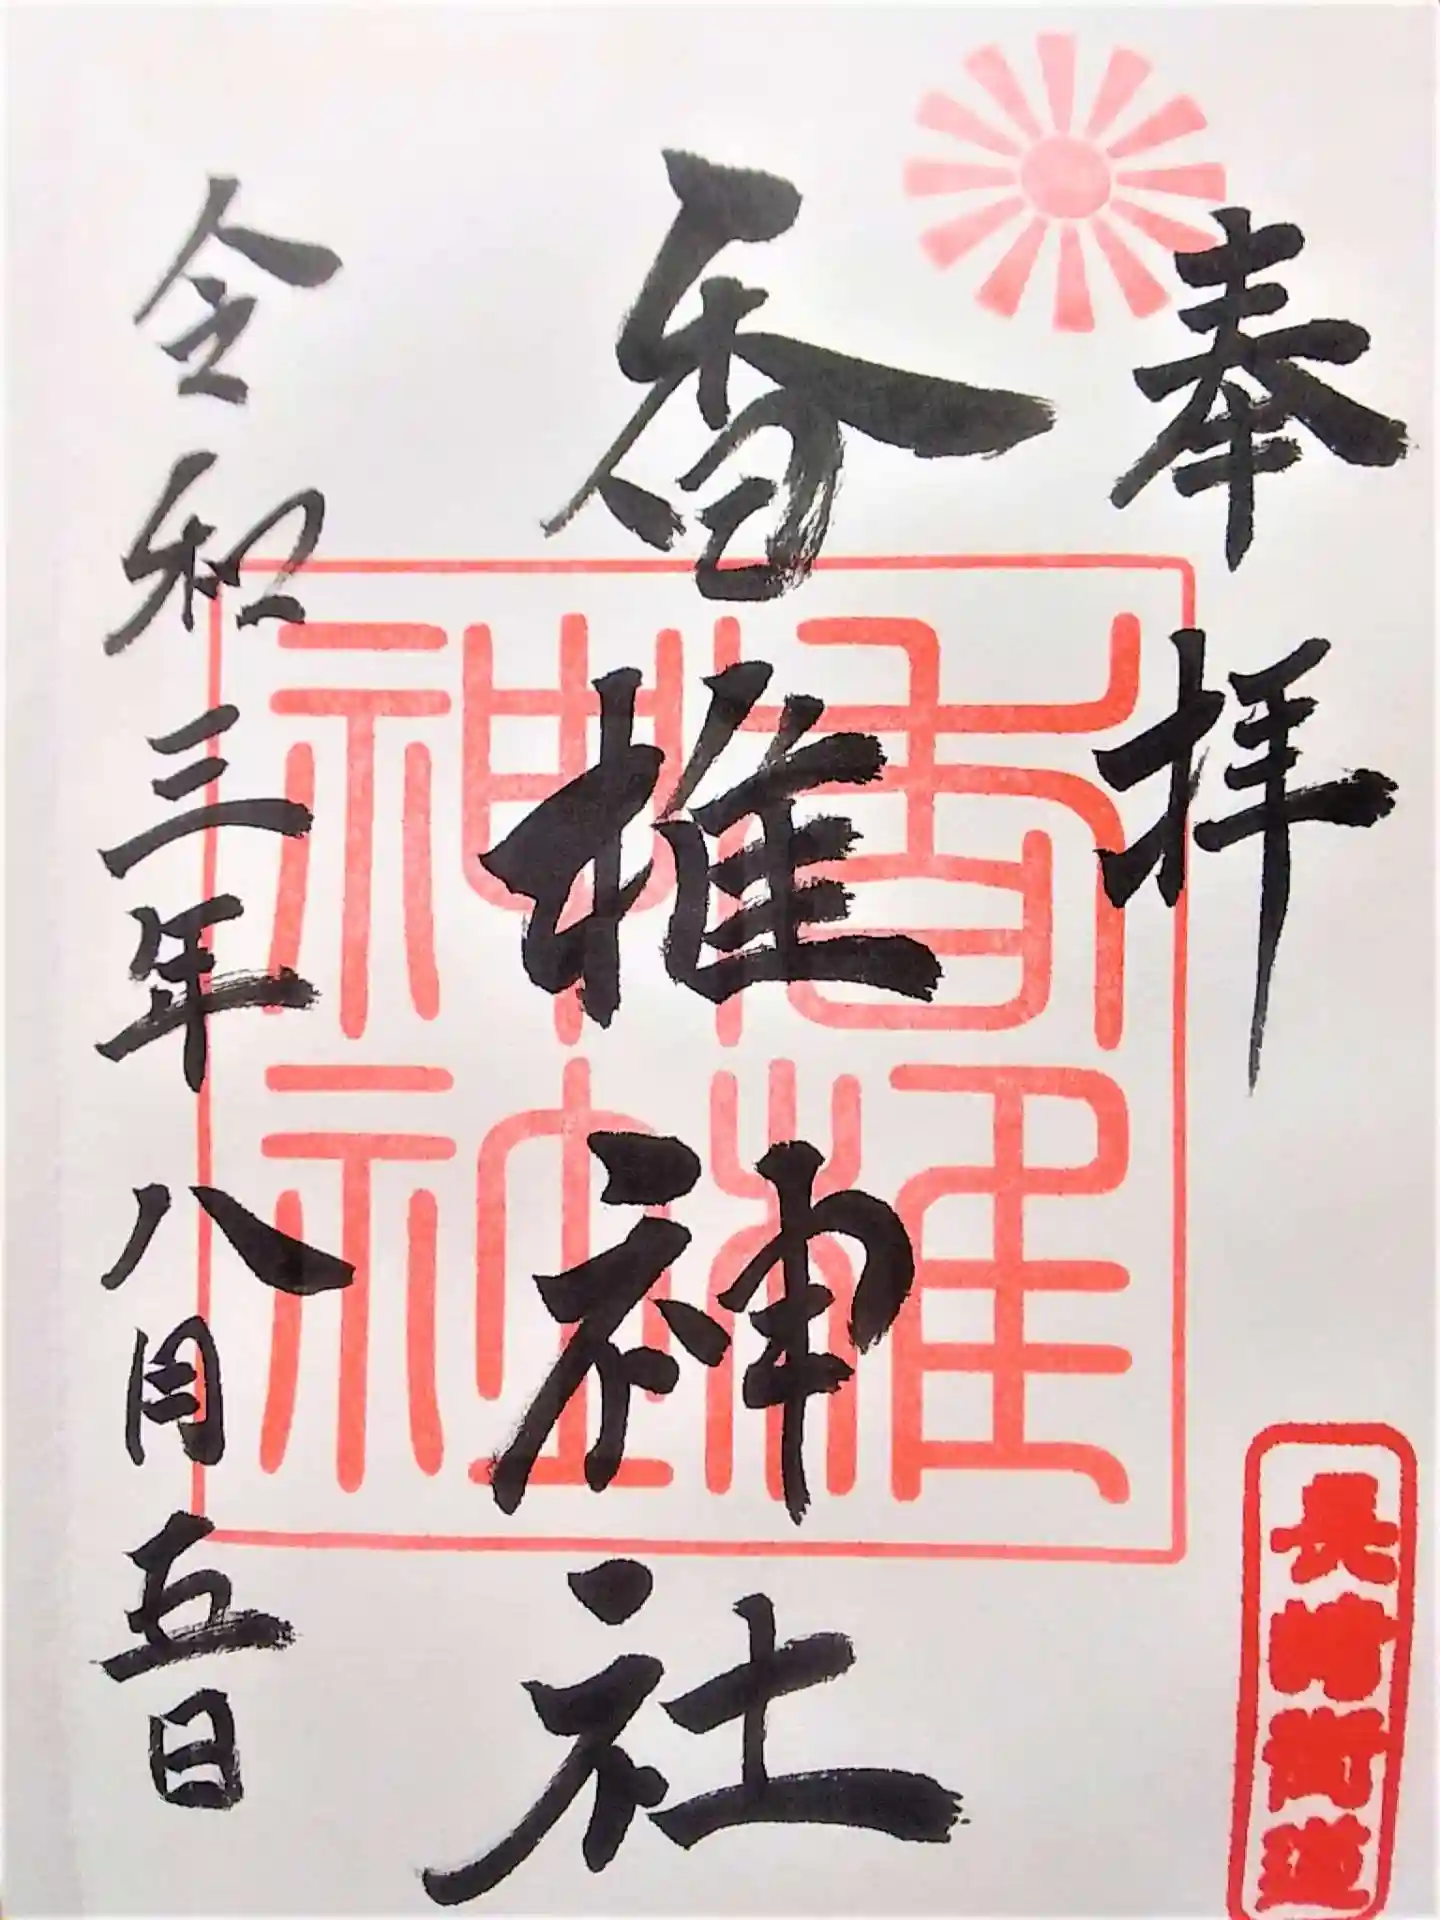 奉拝
香椎神社
香椎
神社
令和三年八月五日
長崎街道